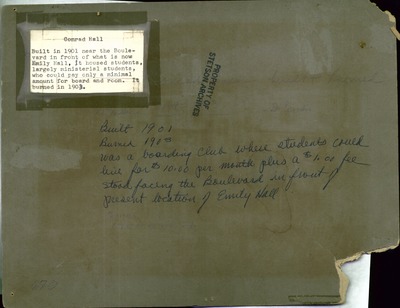 Conrad Hall
Built in 1901 near the Boule-
vard in front of what is now
Emily Hall, it housed students,
largely ministerial students,
who could pay only a minimal
amount for board and room. It
burned in 1903.
PROPERTY OF
STETSON ARCHIVES
Built 1901
Burned
was a boarding club where students could
live for $10.00 per month plus a $1.00 fee
stood facing the Boulevard in front of
present location of Emily Hall